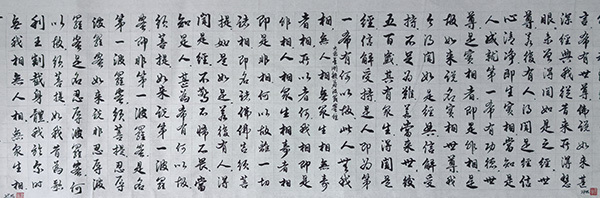 言希有世尊佛說如是甚
深經典我從昔來所得慧
眼未曾得聞如是之經世
尊若復有人得聞是經信
心清淨即生實相當知是
人成就第一希有功德世
尊是實相者即是非相是
故如來說名實相世尊我
今得聞如是經典信解受
持不足為難若當來世後
五百歲其有眾生得聞是
經信解受持是人即為第
一希有何以故此人無我
相無人相無眾生相無壽
者相所以者何我相即是
非相人相眾生相壽者相
即是非相何以故離一切
諸相即名諸佛佛告須菩
提如是如是若復有人得
聞是經不驚不怖不畏當
知是人甚為希有何以故
須菩提如來說第一波羅
蜜即非第一波羅蜜是名
第一波羅蜜須菩提忍辱
波羅蜜如來說非忍辱波
羅蜜是名忍辱波羅蜜何
以故須菩提如我昔為歌
利王割截身體我於爾時
無我相無人相無眾生相